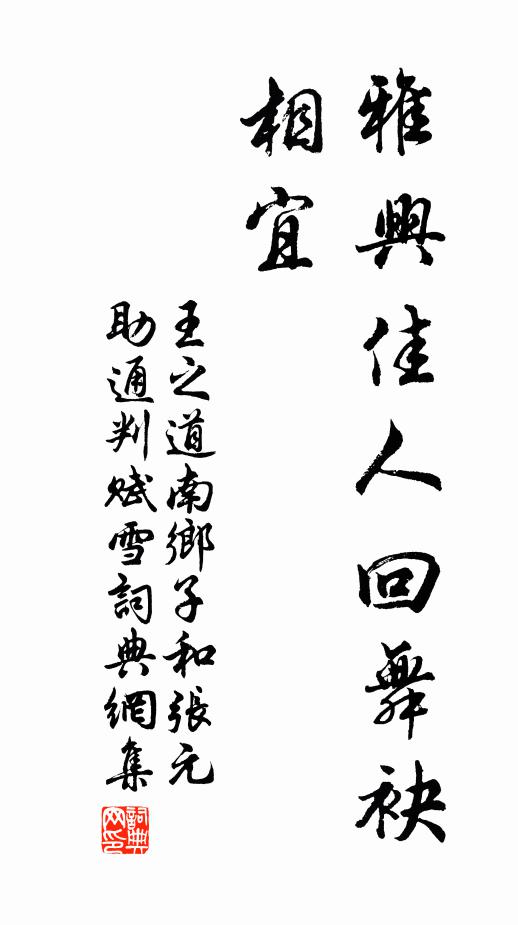 雅興佳人回舞袂
相宜
王之道南鄉子和張元
助通判賦雪詞典網集
詞典
网印